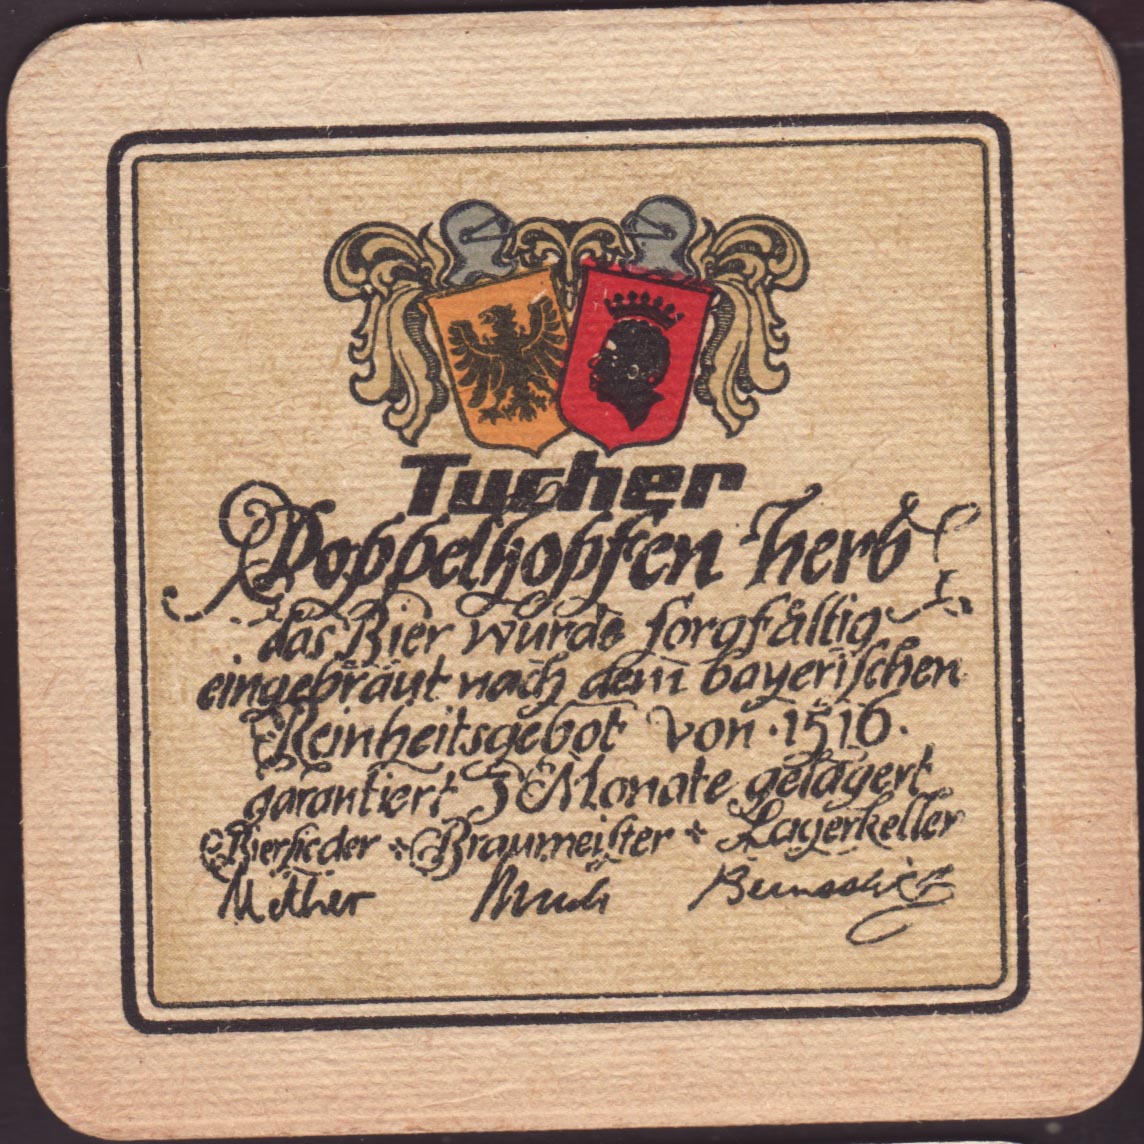 Tucher
Doppelhopfen herb
das Bier wurde ſorgfältig
eingebraut nach dem bayeriſchen
Reinheitsgebot von · 1516.
garantiert 3 Monate gelagert
Bierſieder * Braumeiſter * Lagerkeller